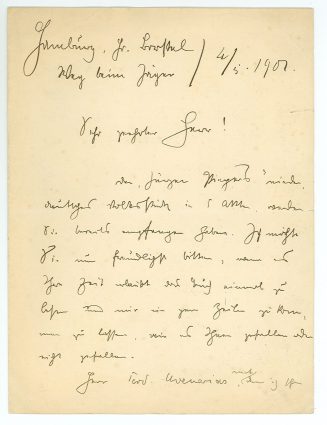 Hamburg, Gr. Borstel
Weg beim Jäger / 4/5. 1901.
Sehr geehrter Herr!
den „Jürgen Piepers" nieder-
deutsches Volksstück in 5 Akten, werden
Sie bereits empfangen haben. Ich möchte
Sie nun freundlichst bitten, wenn es
Ihre Zeit erlaubt das Buch einmal zu
lesen und mir in paar Zeilen zu kom-
men zu lassen, wie es Ihnen gefallen oder
nicht gefallen.
Herr Ferd. Avenarius,